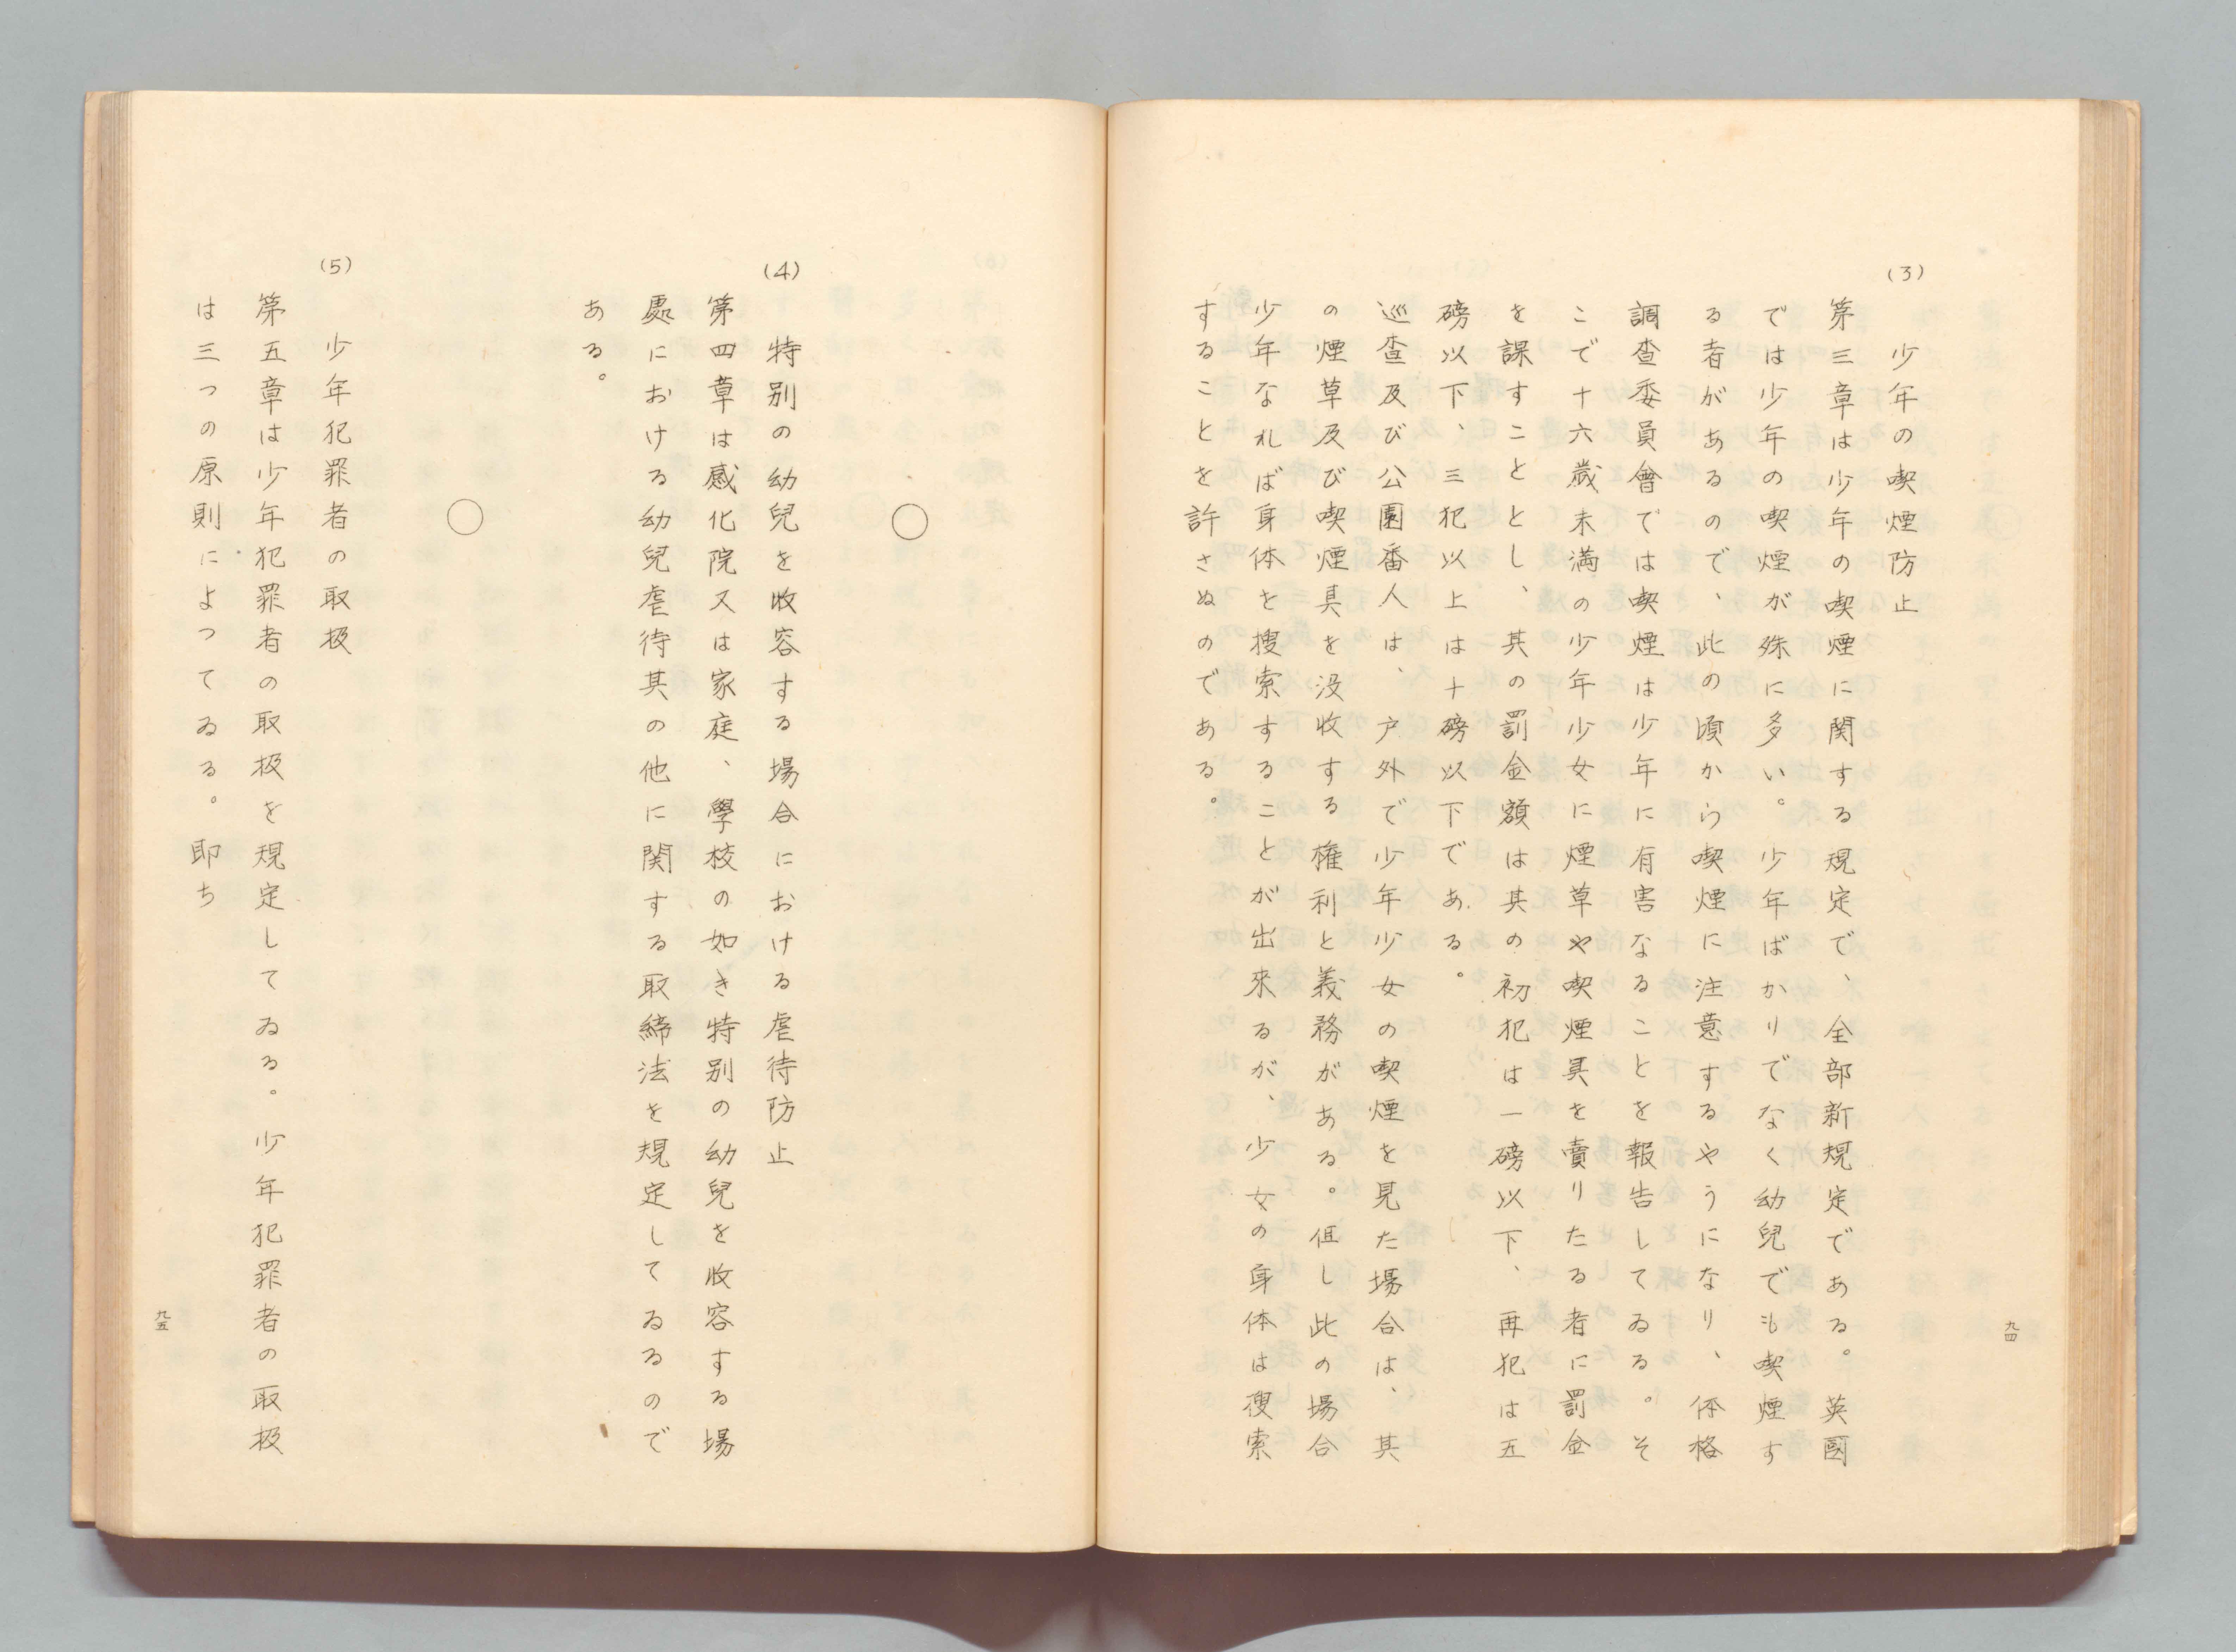 (3)
少年の喫煙防止
第三章は少年の喫煙に関する規定で、全部新規定である。英國
では少年の喫煙が殊に多い。少年ばかりでなく幼兒でも喫煙す
る者があるので、此の頃から喫煙に注意するやうになり、体格
調査委員會では喫煙は少年に有害なることを報告してゐる。そ
こで十六歲未満の少年少女に煙草や喫煙具を賣りたる者に罰金
を課すこととし、其の罰金額は其の初犯は一磅以下、再犯は五
磅以下、三犯以上は十磅以下である。
巡査及び公園番人は、戸外で少年少女の喫煙を見た場合は、其
の煙草及び喫煙具を没收する権利と義務がある。但し此の場合
少年なれば身体を搜索することが出來るが、少女の身体は搜索
することを許さぬのである。
九四
○
(4)
特別の幼兒を收容する場合における虐待防止
第四章は感化院又は家庭、學校の如き特別の幼兒を收容する場
處における幼兒虐待其の他に関する取締法を規定してゐるので
ある。
○
(5)
少年犯罪者の取扱
第五章は少年犯罪者の取扱を規定してゐる。少年犯罪者の取扱
は三つの原則によつてゐる。即ち
九五